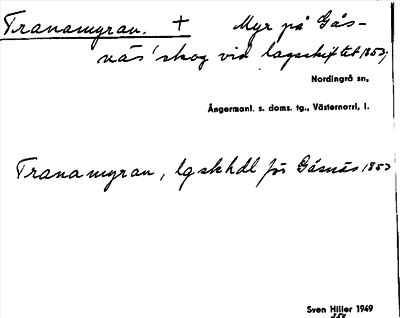 Tranamyran. † Myr på Gås-
näs' skog vid lagskiftet 1853;
Nordingrå sn,
Ångermanl. s. doms. tg., Västernorrl. l.
Tranamyran, lgskhdl för Gåsnäs 1853
Sven Hiller 1949